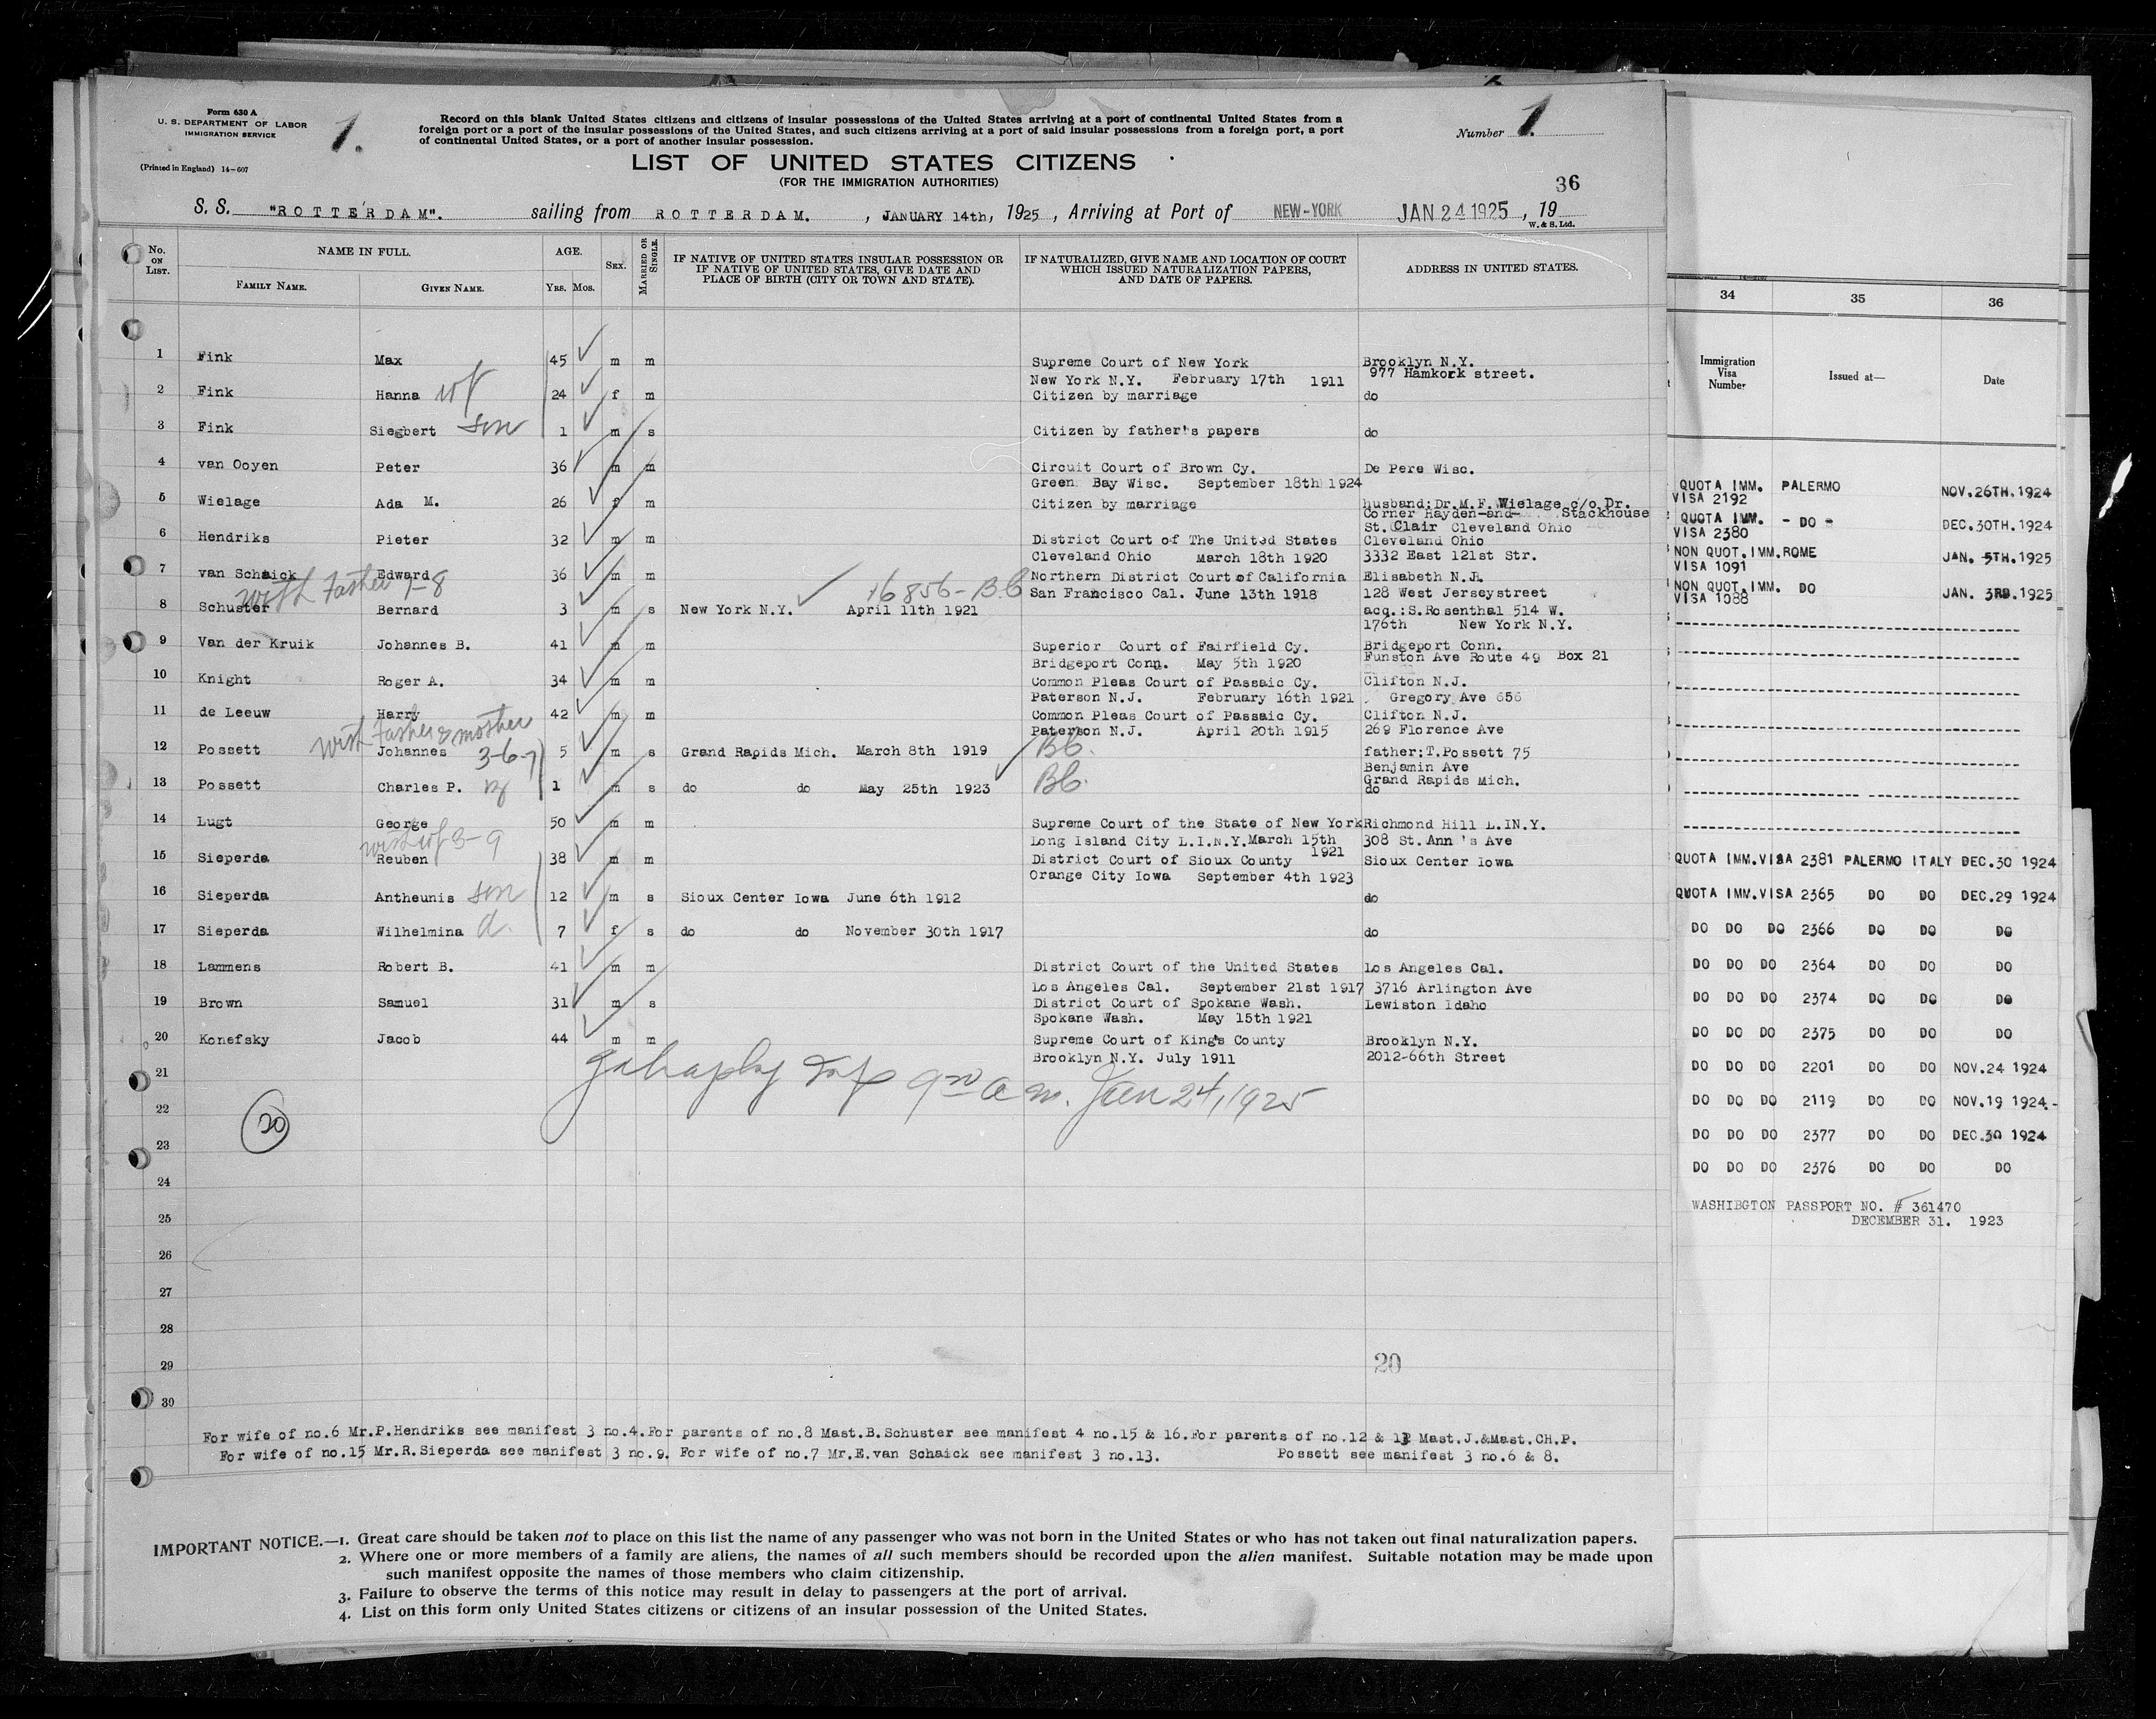 Form 630 A
U. S. DEPARTMENT OF LABOR
IMMIGRATION SERVICE
(Printed in England) 14-607
1.
Record on this blank United States citizens and citizens of insular possessions of the United States arriving at a port of continental United States from a
foreign port or a port of the insular possessions of the United States, and such citizens arriving at a port of said insular possessions from a foreign port, a port
of continental United States, or a port of another insular possession.
Number 1.
LIST OF UNITED STATES CITIZENS
(FOR THE IMMIGRATION AUTHORITIES)
36
S. S. "ROTTERDAM". sailing from ROTTERDAM. , JANUARY 14th, 1925 , Arriving at Port of NEW-YORK JAN 24 1925 , 19
W. & S. Ltd.
No. ON LIST.
NAME IN FULL.
FAMILY NAME. GIVEN NAME.
AGE.
Yrs. Mos.
SEX.
MARRIED OR SINGLE.
IF NATIVE OF UNITED STATES INSULAR POSSESSION OR
IF NATIVE OF UNITED STATES, GIVE DATE AND
PLACE OF BIRTH (CITY OR TOWN AND STATE).
IF NATURALIZED, GIVE NAME AND LOCATION OF COURT
WHICH ISSUED NATURALIZATION PAPERS,
AND DATE OF PAPERS.
ADDRESS IN UNITED STATES.
1 Fink Max 45 m m Supreme Court of New York Brooklyn N.Y.
New York N.Y. February 17th 1911 977 Hamkork street.
2 Fink Hanna wf 24 f m Citizen by marriage do
3 Fink Siegbert son 1 m s Citizen by father's papers do
4 van Ooyen Peter 36 m m Circuit Court of Brown Cy. De Pere Wisc.
Green Bay Wisc. September 18th 1924
5 Wielage Ada M. 26 f m Citizen by marriage husband: Dr.M.F.Wielage c/o Dr.
Corner Hayden-and- Stackhouse
St. Clair Cleveland Ohio
6 Hendriks Pieter 32 m m District Court of The United States Cleveland Ohio
Cleveland Ohio March 18th 1920 3332 East 121st Str.
7 van Schaick Edward 36 m m Northern District Court of California Elisabeth N.J.
with Father 7-8 16856-B.C San Francisco Cal. June 13th 1918 128 West Jerseystreet
8 Schuster Bernard 3 m s New York N.Y. April 11th 1921 acq.:S.Rosenthal 514 W.
176th New York N.Y.
9 Van der Kruik Johannes B. 41 m m Superior Court of Fairfield Cy. Bridgeport Conn.
Bridgeport Conn. May 5th 1920 Funston Ave Route 49 Box 21
10 Knight Roger A. 34 m m Common Pleas Court of Passaic Cy. Clifton N.J.
Paterson N.J. February 16th 1921 Gregory Ave 656
11 de Leeuw Harry 42 m m Common Pleas Court of Passaic Cy. Clifton N.J.
with Father & mother Paterson N.J. April 20th 1915 269 Florence Ave
12 Possett Johannes 3-6-7 5 m s Grand Rapids Mich. March 8th 1919 Bb. father:T.Possett 75
Benjamin Ave
Grand Rapids Mich.
13 Possett Charles P. 1 m s do do May 25th 1923 Bb. do
14 Lugt George 50 m m Supreme Court of the State of New York Richmond Hill L.IN.Y.
with wf 3-9 Long Island City L.I.N.Y. March 15th 1921 308 St.Ann's Ave
15 Sieperda Reuben 38 m m District Court of Sioux County Sioux Center Iowa
Orange City Iowa September 4th 1923
16 Sieperda Antheunis son 12 m s Sioux Center Iowa June 6th 1912 do
17 Sieperda Wilhelmina d. 7 f s do do November 30th 1917 do
18 Lammens Robert B. 41 m m District Court of the United States Los Angeles Cal.
Los Angeles Cal. September 21st 1917 3716 Arlington Ave
19 Brown Samuel 31 m s District Court of Spokane Wash. Lewiston Idaho
Spokane Wash. May 15th 1921
20 Konefsky Jacob 44 m m Supreme Court of King's County Brooklyn N.Y.
Brooklyn N.Y. July 1911 2012-66th Street
21
9 00 a m. Jan 24, 1925
22
20
23
24
25
26
27
28
29
20
30
For wife of no.6 Mr.P.Hendriks see manifest 3 no.4. For parents of no.8 Mast.B.Schuster see manifest 4 no.15 & 16. For parents of no.12 & 13 Mast.J.&Mast.CH.P.
For wife of no.15 Mr.R.Sieperda see manifest 3 no.9. For wife of no.7 Mr.E.van Schaick see manifest 3 no.13. Possett see manifest 3 no.6 & 8.
IMPORTANT NOTICE.—1. Great care should be taken not to place on this list the name of any passenger who was not born in the United States or who has not taken out final naturalization papers.
2. Where one or more members of a family are aliens, the names of all such members should be recorded upon the alien manifest. Suitable notation may be made upon
such manifest opposite the names of those members who claim citizenship.
3. Failure to observe the terms of this notice may result in delay to passengers at the port of arrival.
4. List on this form only United States citizens or citizens of an insular possession of the United States.
34 35 36
Immigration Visa Number Issued at— Date
QUOTA IMM. PALERMO NOV.26TH.1924
VISA 2192
QUOTA IMM. - DO - DEC.30TH.1924
VISA 2380
NON QUOT.IMM.ROME JAN. 5TH.1925
VISA 1091
NON QUOT.IMM. DO JAN. 3RD.1925
VISA 1088
QUOTA IMM.VISA 2381 PALERMO ITALY DEC.30 1924
QUOTA IMM.VISA 2365 DO DO DEC.29 1924
DO DO DO 2366 DO DO DO
DO DO DO 2364 DO DO DO
DO DO DO 2374 DO DO DO
DO DO DO 2375 DO DO DO
DO DO DO 2201 DO DO NOV.24 1924
DO DO DO 2119 DO DO NOV.19 1924.-
DO DO DO 2377 DO DO DEC.30 1924
DO DO DO 2376 DO DO DO
WASHIBGTON PASSPORT NO. # 361470
DECEMBER 31. 1923